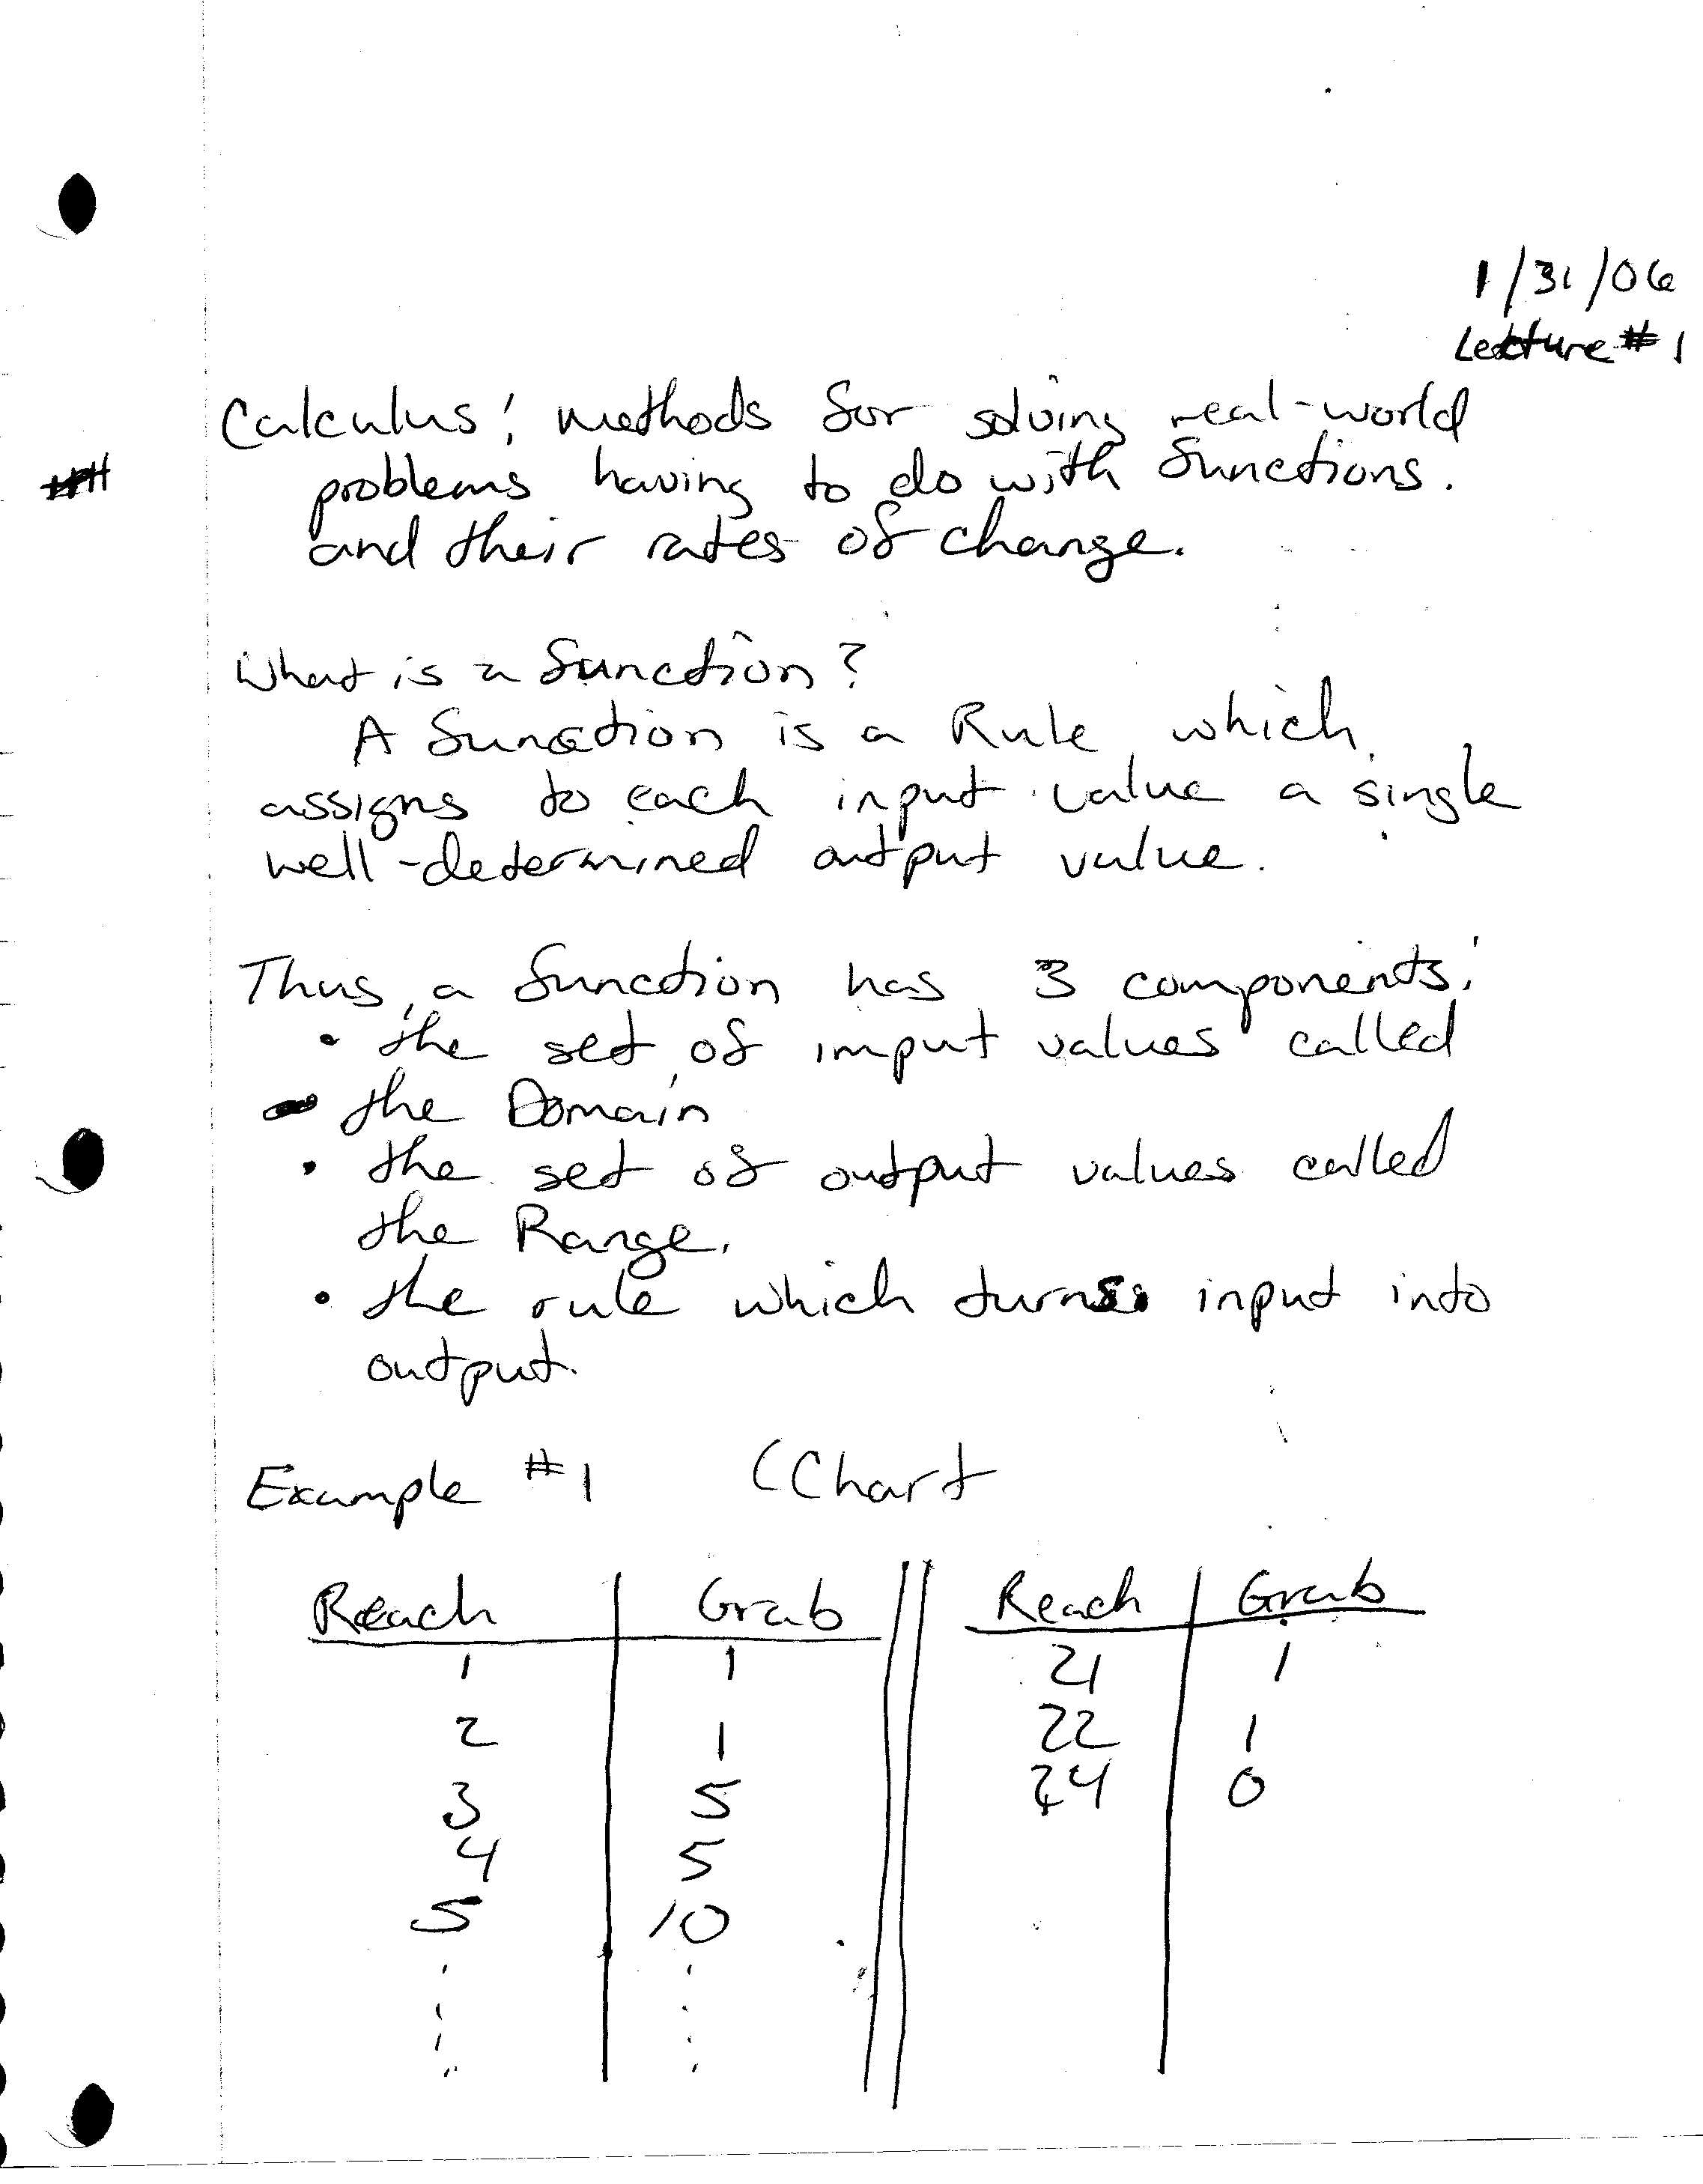 1/31/06
Lecture #1
Calculus: methods for solving real-world
problems having to do with functions.
and their rates of change.
What is a function?
A function is a Rule which
assigns to each input value a single
well-determined output value.
Thus, a function has 3 components:
• the set of imput values called
the Domain
• the set of output values called
the Range.
• the rule which turns input into
output.
Example #1 (Chart
Reach Grab Reach Grab
1 1 21 1
2 1 22 1
3 5 24 0
4 5
5 10